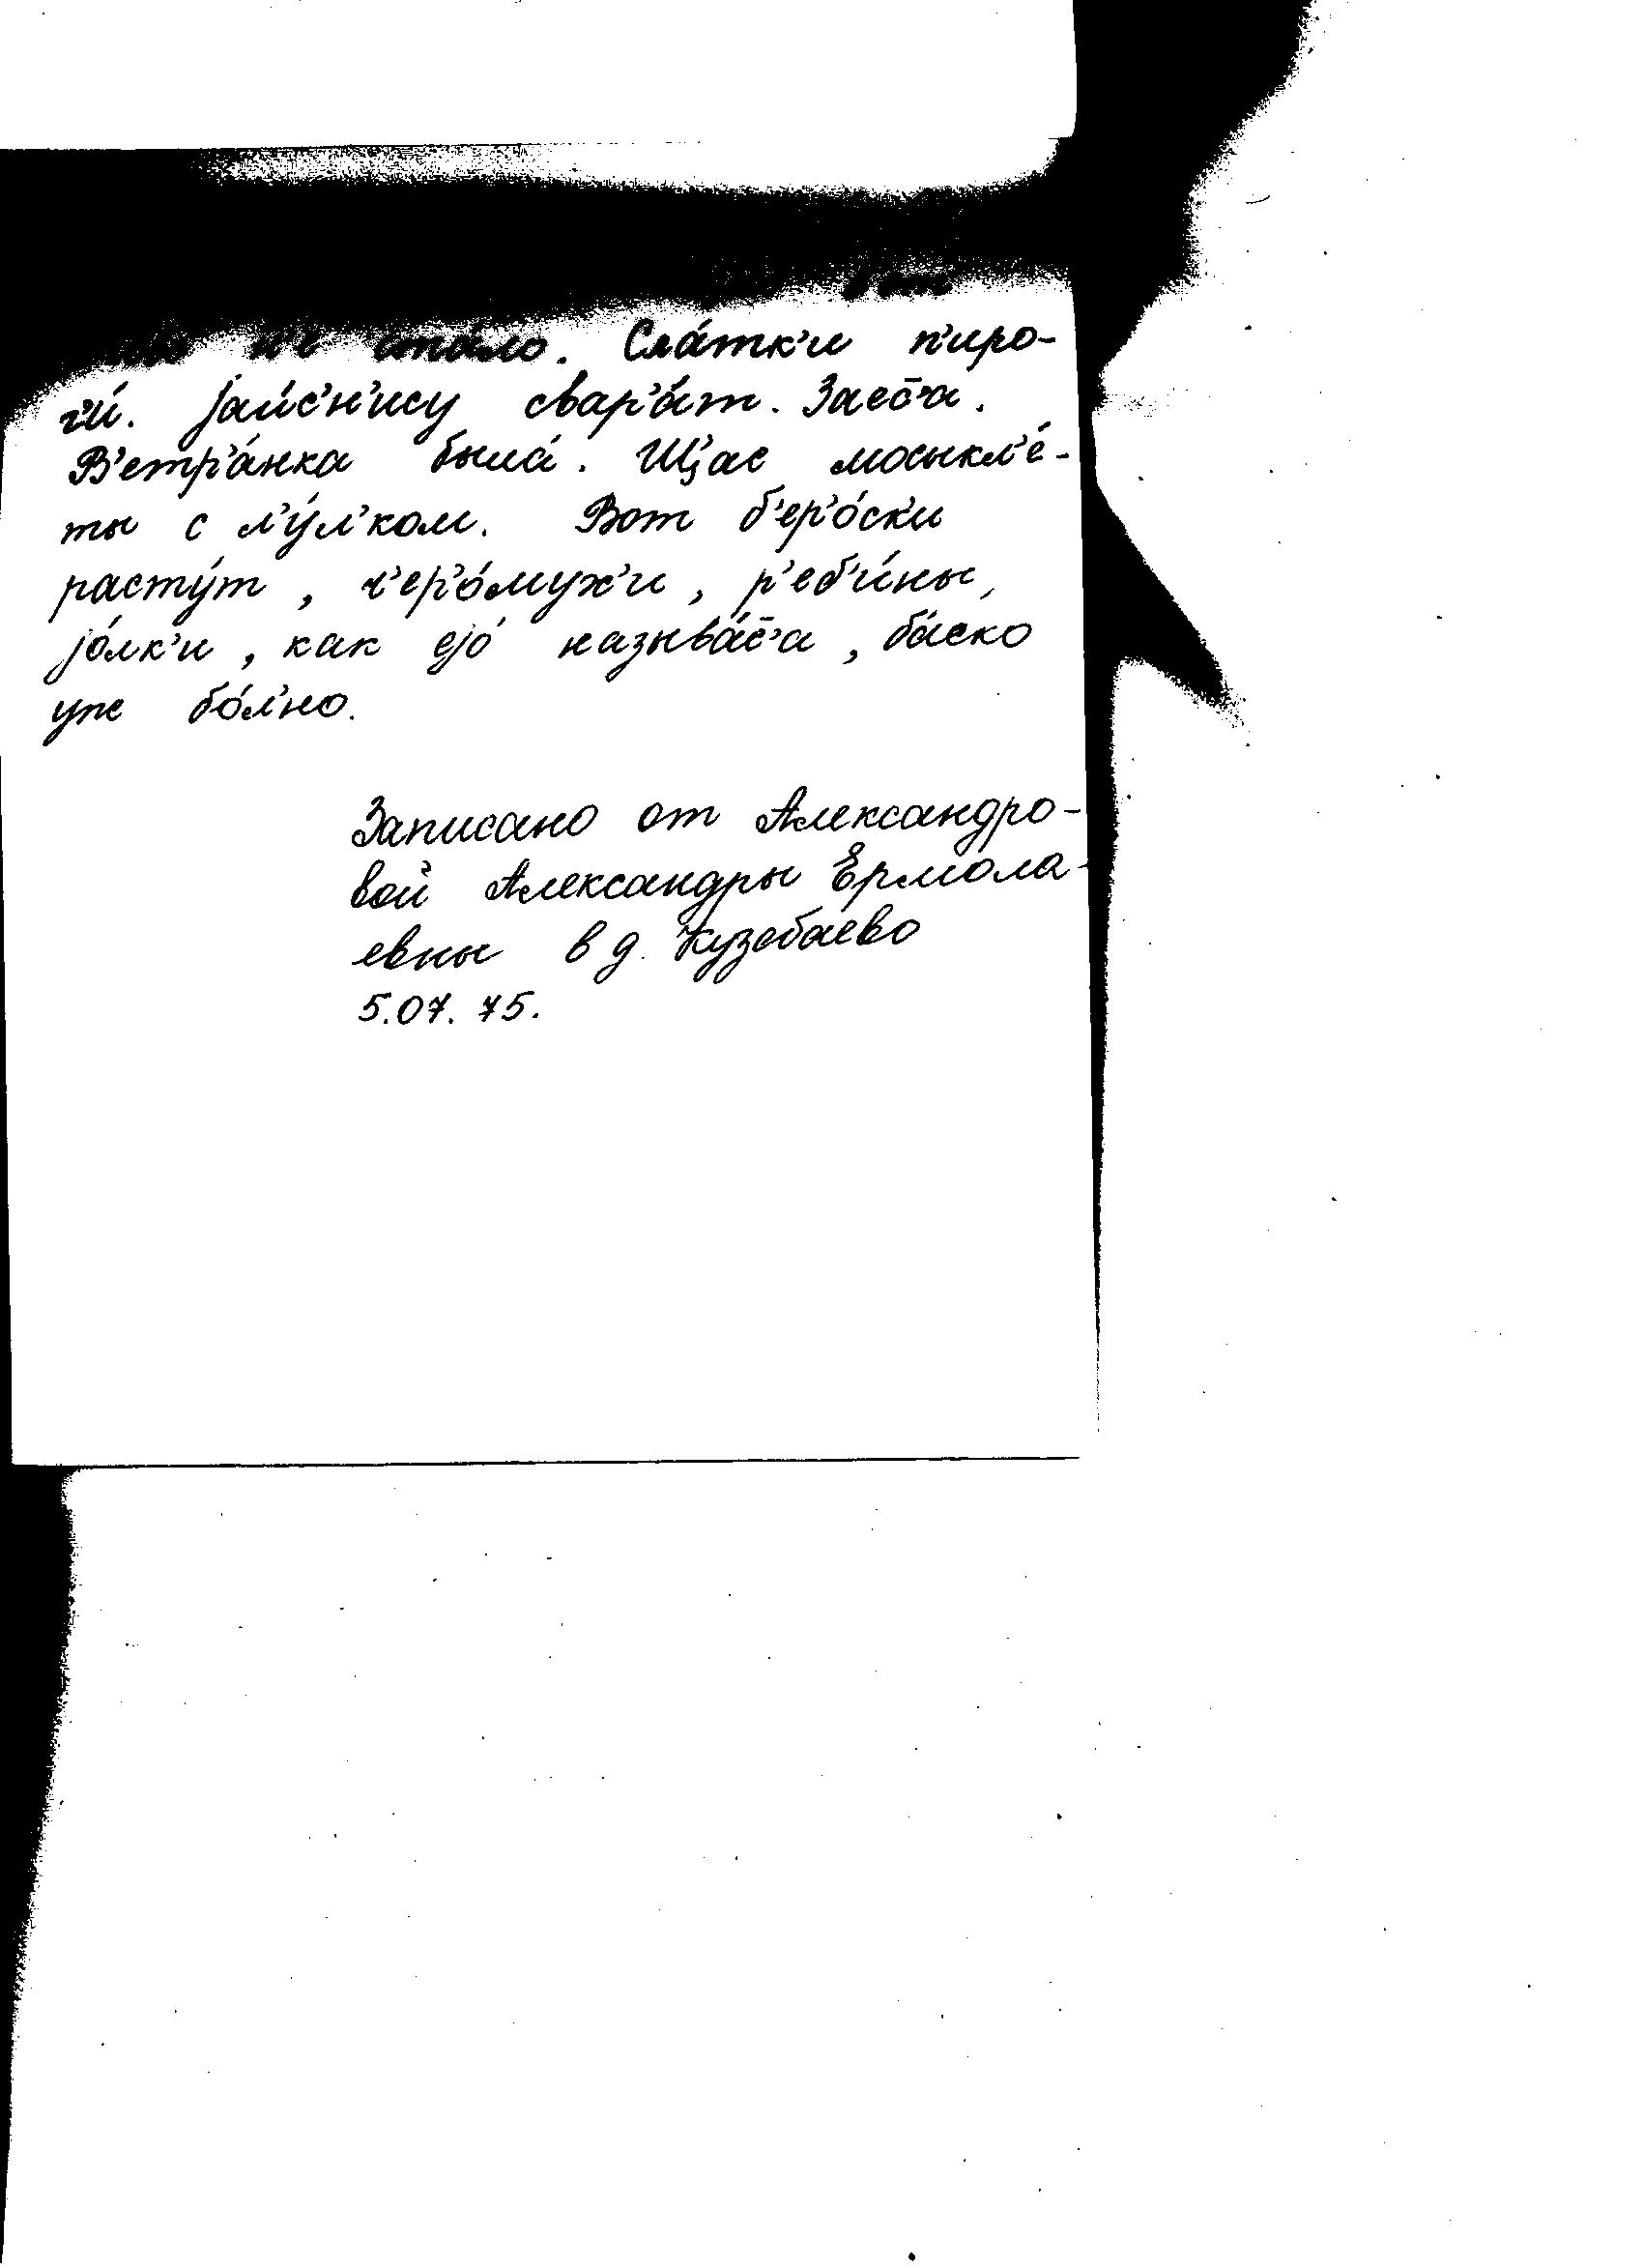 н'е ста́ло. Сла́тк'и п'иро-
г'и́. jаи́с'н'ису свар'а́т. Заес̄'а.
В'етр'а́нка была́. Щ'ас мосыкл'е́-
ты с л'у́л'ком. Вот б'ер'о́ск'и
расту́т, ч'ер'о́мух'и, р'еб'и́ны,
jо́лк'и, как еjо́ называ́с̄'а, ба́ско
уж бо́л'но.
Записано от Александро-
вой Александры Ермола-
евны в д. Кузебаево
5.07.75.